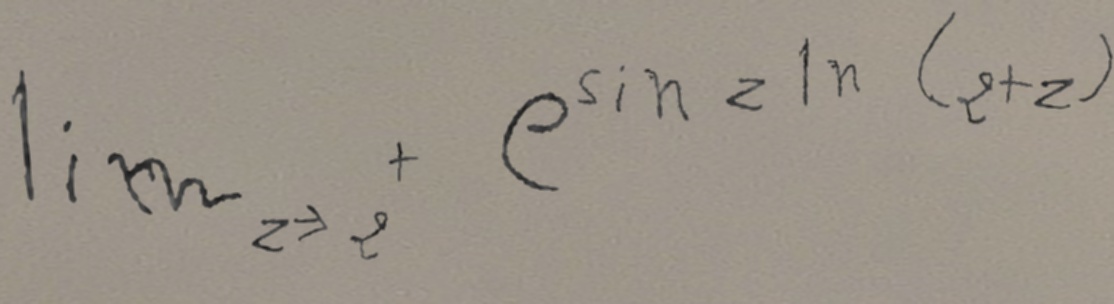 \lim_{z \to 2^+} e^{\sin z \ln (2+z)}